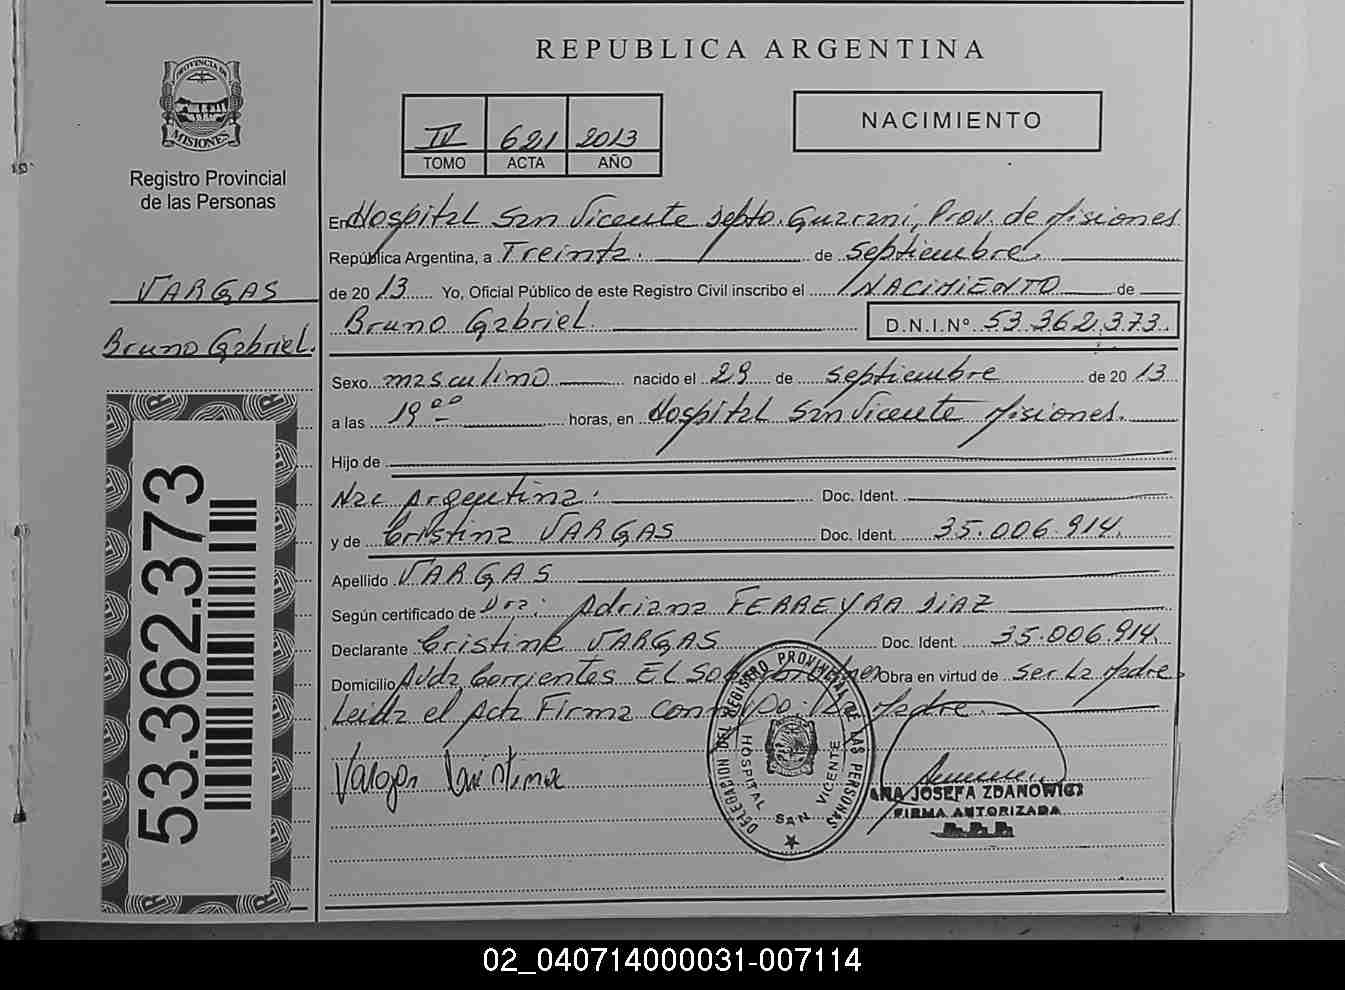 REPUBLICA ARGENTINA
PROVINCIA DE
MISIONES
Registro Provincial
de las Personas
IV 621 2013
TOMO ACTA AÑO
NACIMIENTO
VARGAS
Bruno Gabriel.
53.362.373
En Hospital San Vicente Depto. Guarani, Prov. de Misiones
República Argentina, a Treinta. de Septiembre.
de 20 13 Yo, Oficial Público de este Registro Civil inscribo el NACIMIENTO de
Bruno Gabriel. D.N.I.Nº 53.362.373.
Sexo masculino nacido el 29 de Septiembre de 20 13
a las 19 00 horas, en Hospital San Vicente Misiones.
Hijo de
Nac Argentina. Doc. Ident.
y de Cristina VARGAS Doc. Ident. 35.006.914.
Apellido VARGAS
Según certificado de Dra. Adriana FERREYRA DIAZ
Declarante Cristina VARGAS Doc. Ident. 35.006.914.
Domicilio Avda Corrientes El Soberbio Obra en virtud de ser La Madre.
Leida el Acta Firma La Madre.
Vargas Cristina
DELEGADA DEL REGISTRO PROVINCIAL DE LAS PERSONAS
HOSPITAL SAN VICENTE
ANA JOSEFA ZDANOWICZ
FIRMA AUTORIZADA
02_040714000031-007114